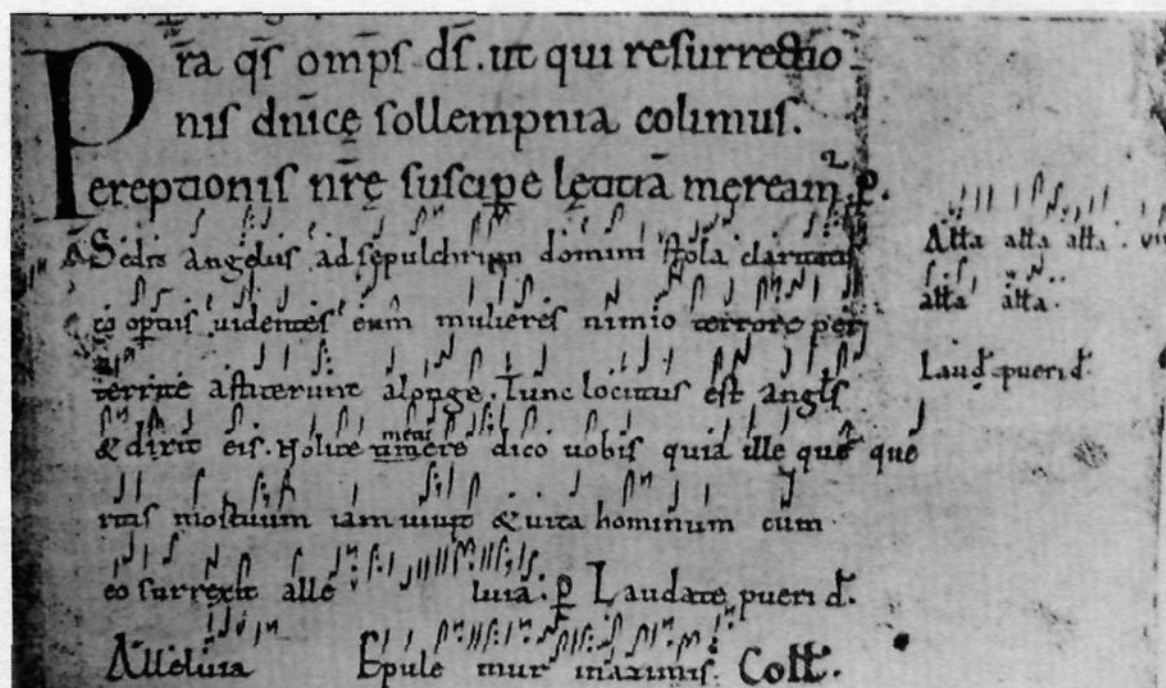 P r̄a qs̄ om̄ps ds̄. ut qui resurrectio
nis dn̄icę sollempnia colimus.
ereptionis nr̄ę suscipe lętitiā mereām̄. p.
A Sedit angelus ad sepulchrum domini stola claritatis
co optus uidentes eum mulieres nimio terrore per
territe astiterunt a longe. Tunc locutus est angls
& dixit eis. Nolite metuere dico uobis quia ille quē que
ritis mortuum iam uiuit & uita hominum cum
eo surrexit alle luia. p Laudate pueri d.
Alleluia Epule mur inazimis. Coll.
Alla alla alla.
alla alla.
Laud. pueri d.